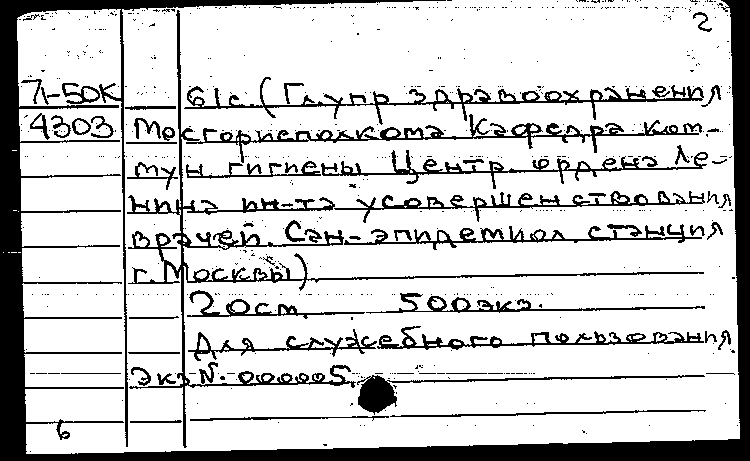 2
71-50К 61с. (Гл. упр здравоохранения
4303 Мосгорисполкома. Кафедра ком-
мун. гигиены Центр. ордена Ле-
нина ин-та усовершенствования
врачей. Сан.-эпидемиол. станция
г. Москвы).
20см. 500экз.
Для служебного пользования
Экз. №. 000005.
6